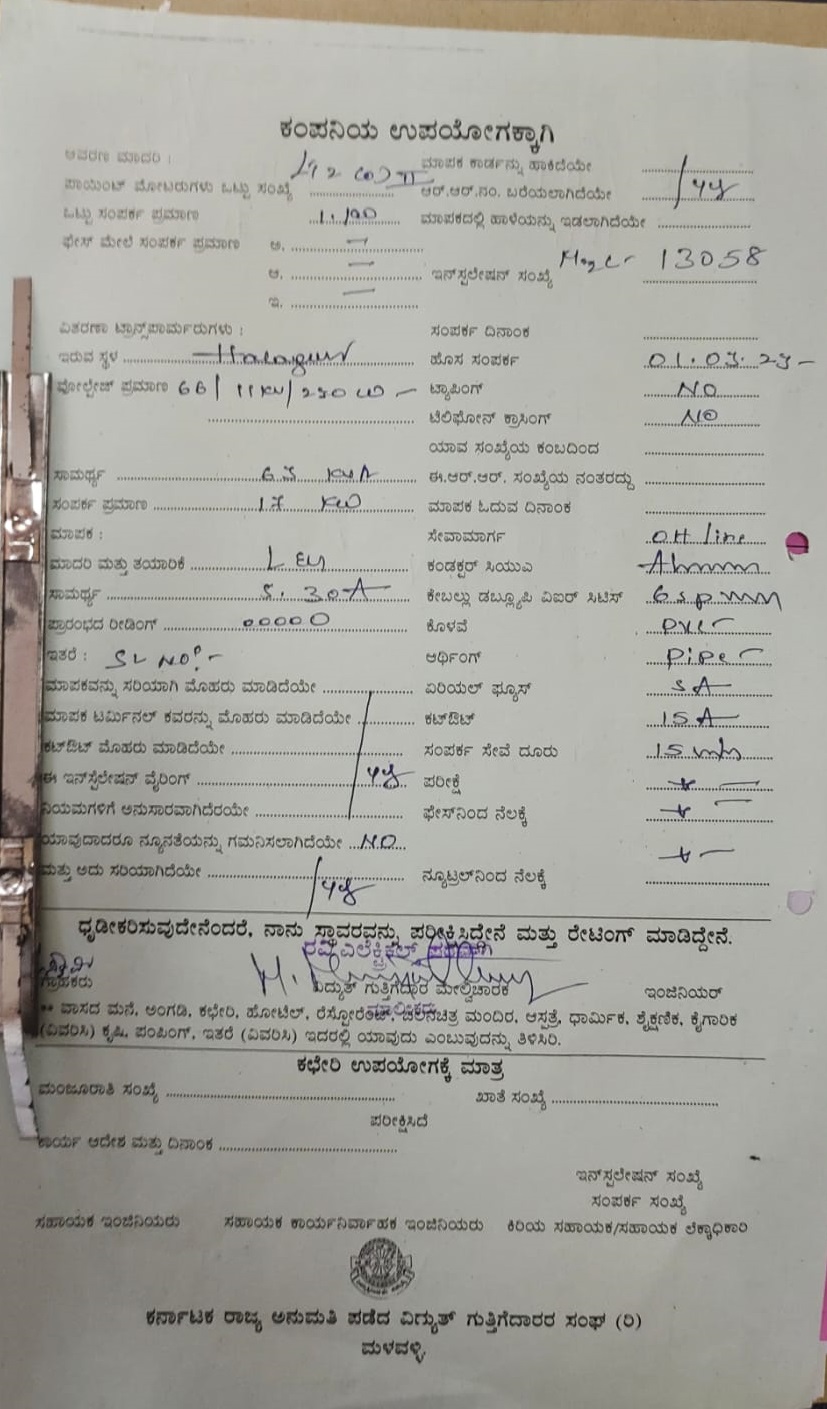 ಕಂಪನಿಯ ಉಪಯೋಗಕ್ಕಾಗಿ
ಆವರಣ ಮಾದರಿ : ಮಾಪಕ ಕಾರ್ಡನ್ನು ಹಾಕಿದೆಯೇ
ಪಾಯಿಂಟ್ ಮೋಟರುಗಳು ಒಟ್ಟು ಸಂಖ್ಯೆ ಆರ್.ಆರ್.ನಂ. ಬರೆಯಲಾಗಿದೆಯೇ
ಒಟ್ಟು ಸಂಪರ್ಕ ಪ್ರಮಾಣ ಮಾಪಕದಲ್ಲಿ ಹಾಳೆಯನ್ನು ಇಡಲಾಗಿದೆಯೇ
ಫೇಸ್ ಮೇಲೆ ಸಂಪರ್ಕ ಪ್ರಮಾಣ ಅ. –
ಆ. – ಇನ್‌ಸ್ಟಲೇಷನ್ ಸಂಖ್ಯೆ 13058
ಇ. –
ವಿತರಣಾ ಟ್ರಾನ್ಸ್‌ಪಾರ್ಮರುಗಳು : ಸಂಪರ್ಕ ದಿನಾಂಕ
ಇರುವ ಸ್ಥಳ Halagur ಹೊಸ ಸಂಪರ್ಕ
ವೋಲ್ಟೇಜ್ ಪ್ರಮಾಣ 66/11KV/250 ಟ್ಯಾಪಿಂಗ್ NO
ಟೆಲಿಫೋನ್ ಕ್ರಾಸಿಂಗ್ NO
ಯಾವ ಸಂಖ್ಯೆಯ ಕಂಬದಿಂದ
ಸಾಮರ್ಥ್ಯ 63 KVA ಈ.ಆರ್.ಆರ್. ಸಂಖ್ಯೆಯ ನಂತರದ್ದು
ಸಂಪರ್ಕ ಪ್ರಮಾಣ ಮಾಪಕ ಓದುವ ದಿನಾಂಕ
ಮಾಪಕ : ಸೇವಾಮಾರ್ಗ OH line
ಮಾದರಿ ಮತ್ತು ತಯಾರಿಕೆ ಕಂಡಕ್ಟರ್ ಸಿಯುಎ
ಸಾಮರ್ಥ್ಯ 5.30A ಕೇಬಲ್ಲು ಡಬ್ಲ್ಯೂಪಿ ವಿಐರ್ ಸಿಟಿಸ್
ಪ್ರಾರಂಭದ ರೀಡಿಂಗ್ 00000 ಕೊಳವೆ PVC
ಇತರೆ : SL NO:- ಆರ್ಥಿಂಗ್ PiPe
ಮಾಪಕವನ್ನು ಸರಿಯಾಗಿ ಮೊಹರು ಮಾಡಿದೆಯೇ ಏರಿಯಲ್ ಫ್ಯೂಸ್ 5A
ಮಾಪಕ ಟರ್ಮಿನಲ್ ಕವರನ್ನು ಮೊಹರು ಮಾಡಿದೆಯೇ ಕಟ್‌ಔಟ್ 15A
ಕಟ್‌ಔಟ್ ಮೊಹರು ಮಾಡಿದೆಯೇ ಸಂಪರ್ಕ ಸೇವೆ ದೂರು 15 mts
ಈ ಇನ್‌ಸ್ಟೆಲೇಷನ್ ವೈರಿಂಗ್ ಪರೀಕ್ಷೆ
ನಿಯಮಗಳಿಗೆ ಅನುಸಾರವಾಗಿದೆರಯೇ ಫೇಸ್‌ನಿಂದ ನೆಲಕ್ಕೆ
ಯಾವುದಾದರೂ ನ್ಯೂನತೆಯನ್ನು ಗಮನಿಸಲಾಗಿದೆಯೇ NO
ಮತ್ತು ಅದು ಸರಿಯಾಗಿದೆಯೇ ನ್ಯೂಟ್ರಲ್‌ನಿಂದ ನೆಲಕ್ಕೆ
ಧೃಡೀಕರಿಸುವುದೇನೆಂದರೆ, ನಾನು ಸ್ಥಾವರವನ್ನು ಪರೀಕ್ಷಿಸಿದ್ದೇನೆ ಮತ್ತು ರೇಟಿಂಗ್ ಮಾಡಿದ್ದೇನೆ.
ಗ್ರಾಹಕರು ವಿದ್ಯುತ್ ಗುತ್ತಿಗೆದಾರ ಮೇಲ್ವಿಚಾರಕ ಇಂಜಿನಿಯರ್
** ವಾಸದ ಮನೆ, ಅಂಗಡಿ, ಕಛೇರಿ, ಹೋಟೆಲ್, ರೆಸ್ಟೋರೆಂಟ್, ಚಲನಚಿತ್ರ ಮಂದಿರ, ಆಸ್ಪತ್ರೆ, ಧಾರ್ಮಿಕ, ಶೈಕ್ಷಣಿಕ, ಕೈಗಾರಿಕ
(ವಿವರಿಸಿ) ಕೃಷಿ, ಪಂಪಿಂಗ್, ಇತರೆ (ವಿವರಿಸಿ) ಇದರಲ್ಲಿ ಯಾವುದು ಎಂಬುವುದನ್ನು ತಿಳಿಸಿರಿ.
ಕಛೇರಿ ಉಪಯೋಗಕ್ಕೆ ಮಾತ್ರ
ಮಂಜೂರಾತಿ ಸಂಖ್ಯೆ ಖಾತೆ ಸಂಖ್ಯೆ
ಪರೀಕ್ಷಿಸಿದೆ
ಕಾರ್ಯ ಆದೇಶ ಮತ್ತು ದಿನಾಂಕ
ಇನ್‌ಸ್ಟಲೇಷನ್ ಸಂಖ್ಯೆ
ಸಂಪರ್ಕ ಸಂಖ್ಯೆ
ಸಹಾಯಕ ಇಂಜಿನಿಯರು ಸಹಾಯಕ ಕಾರ್ಯನಿರ್ವಾಹಕ ಇಂಜಿನಿಯರು ಕಿರಿಯ ಸಹಾಯಕ/ಸಹಾಯಕ ಲೆಕ್ಕಾಧಿಕಾರಿ
ಕರ್ನಾಟಕ ರಾಜ್ಯ ಅನುಮತಿ ಪಡೆದ ವಿದ್ಯುತ್ ಗುತ್ತಿಗೆದಾರರ ಸಂಘ (ರಿ)
ಮಳವಳ್ಳಿ.